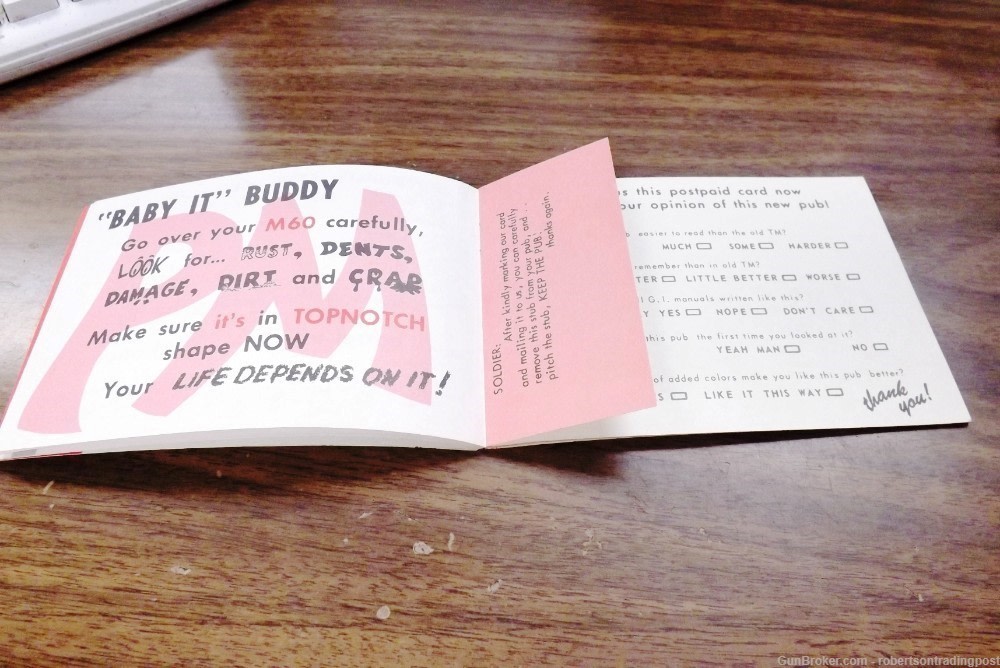 "BABY IT" BUDDY
Go over your M60 carefully,
LOOK for... RUST, DENTS,
DAMAGE, DIRT and CRAP
Make sure it's in TOPNOTCH
shape NOW
Your LIFE DEPENDS ON IT!
PM
SOLDIER:
After kindly marking our card
and mailing it to us, you can carefully
remove this stub from your pub, and...
pitch the stub, KEEP THE PUB.
thanks again.
us this postpaid card now
our opinion of this new pub!
easier to read than the old TM?
MUCH SOME HARDER
remember than in old TM?
TER LITTLE BETTER WORSE
G.I. manuals written like this?
Y YES NOPE DON'T CARE
this pub the first time you looked at it?
YEAH MAN NO
of added colors make you like this pub better?
S LIKE IT THIS WAY
thank
you!
GunBroker.com - robertsontradingpost